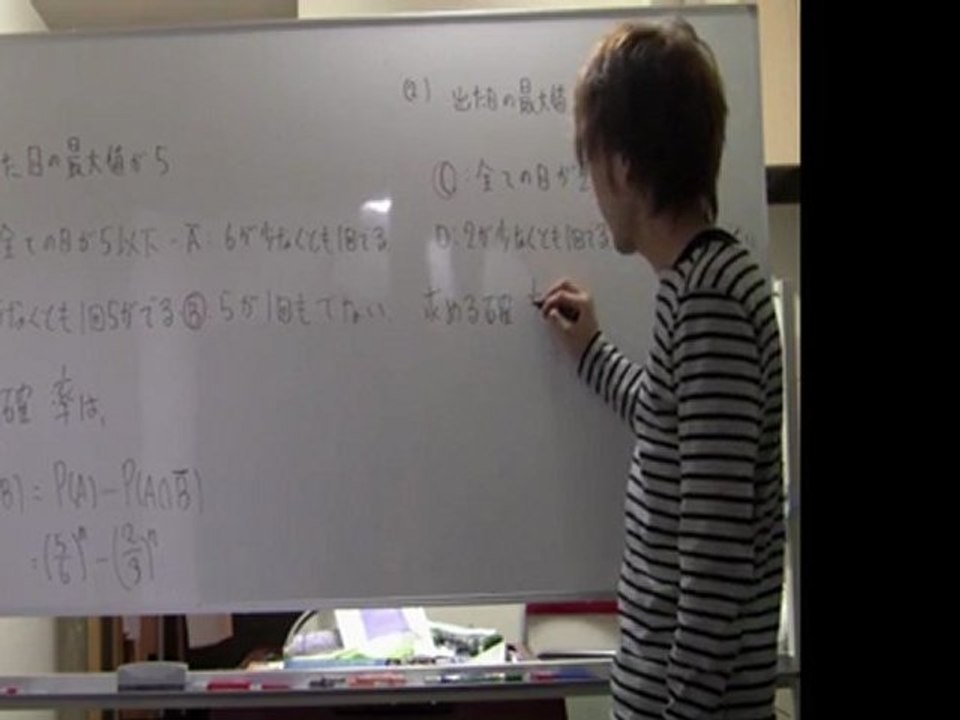 た目の最大値が5
全ての目が5以下 - A̅: 6が少なくとも1回でる
なくとも1回5がでる B̅: 5が1回もでない
確率は、
B) = P(A) - P(A∩B̅)
= (5/6)^n - (2/3)^n
(2) 出た目の最大値
C: 全ての目が2
D: 2が少なくとも1回でる
求める確